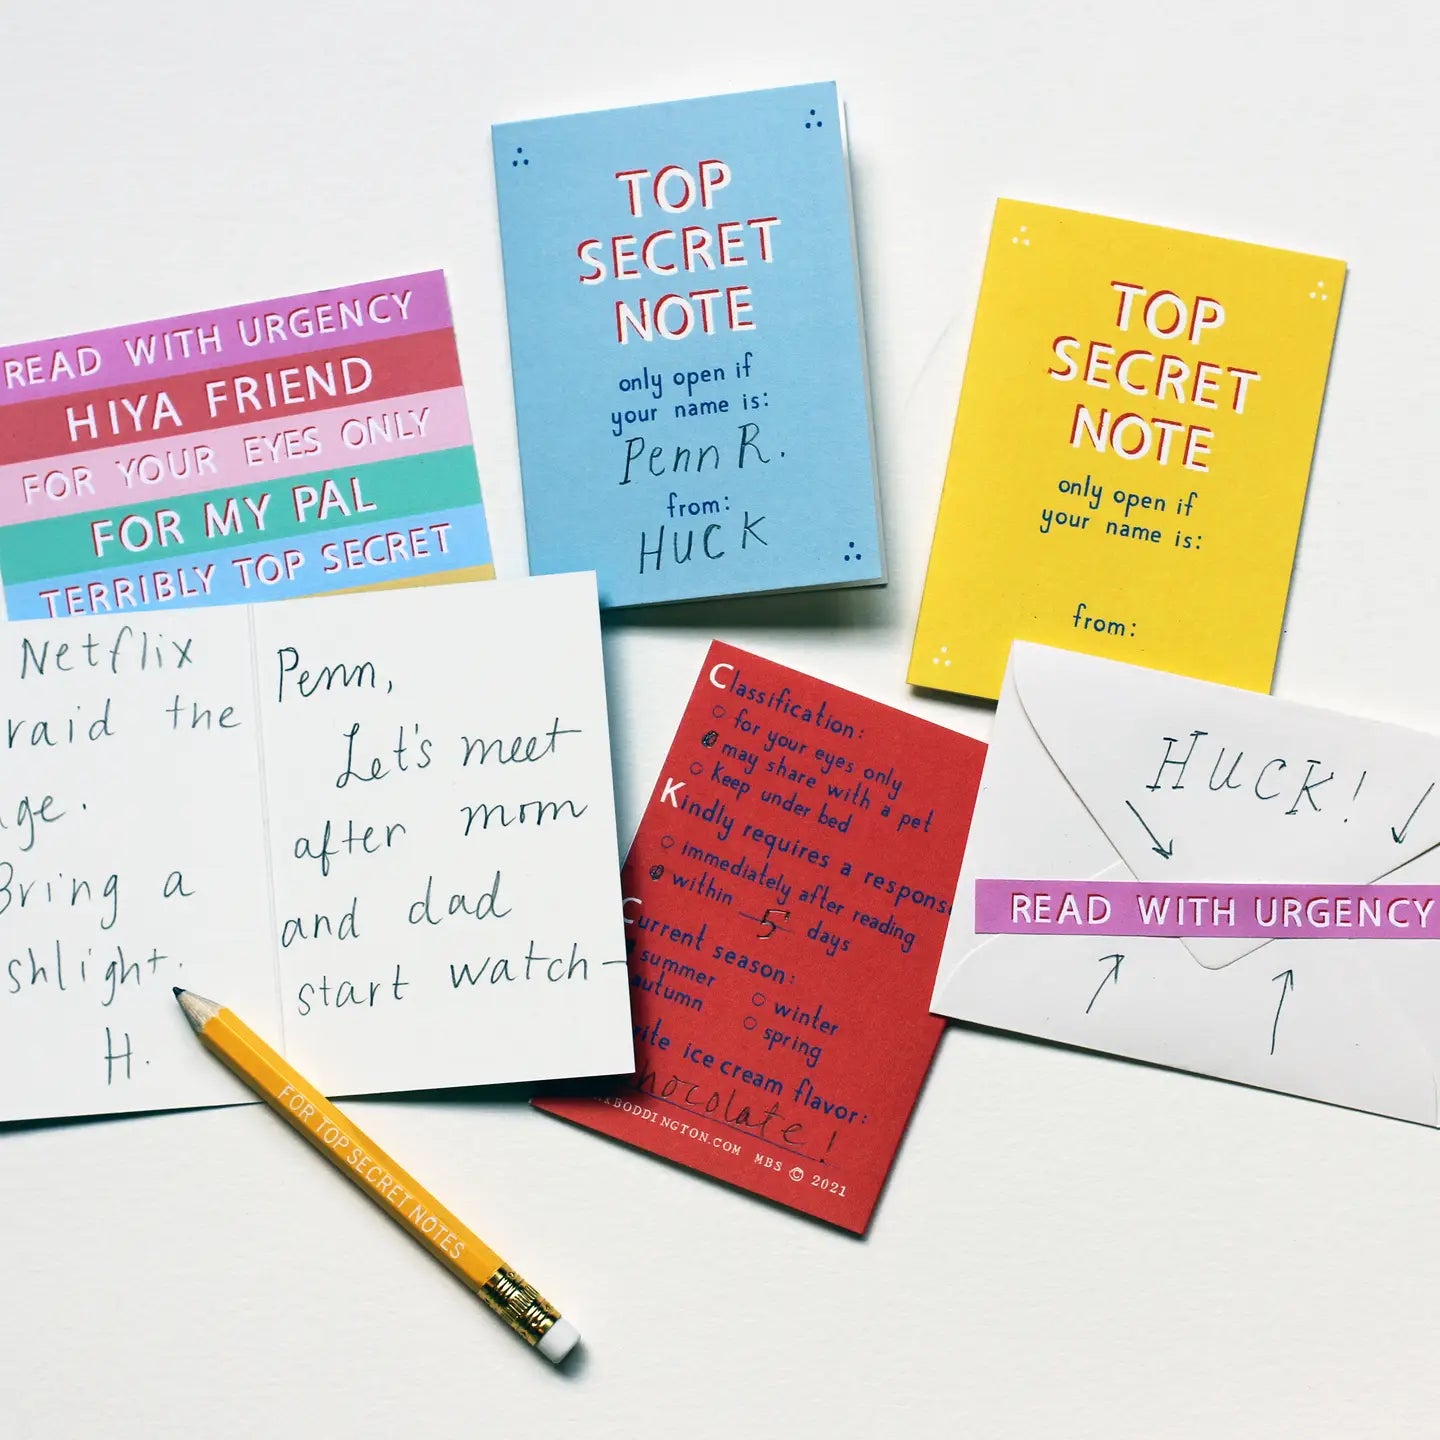 TOP
SECRET
NOTE
only open if
your name is:
Penn R.
from:
HUCK
TOP
SECRET
NOTE
only open if
your name is:
from:
READ WITH URGENCY
HIYA FRIEND
FOR YOUR EYES ONLY
FOR MY PAL
TERRIBLY TOP SECRET
Netflix
the
Bring a
H.
Penn,
Let's meet
after mom
and dad
start watch-
Classification:
for your eyes only
may share with a pet
Keep under bed
Kindly requires a response
immediately after reading
within 5 days
Current season:
summer
autumn
winter
spring
ice cream flavor:
chocolate!
BODDINGTON.COM MBS © 2021
HUCK!
READ WITH URGENCY
FOR TOP SECRET NOTES